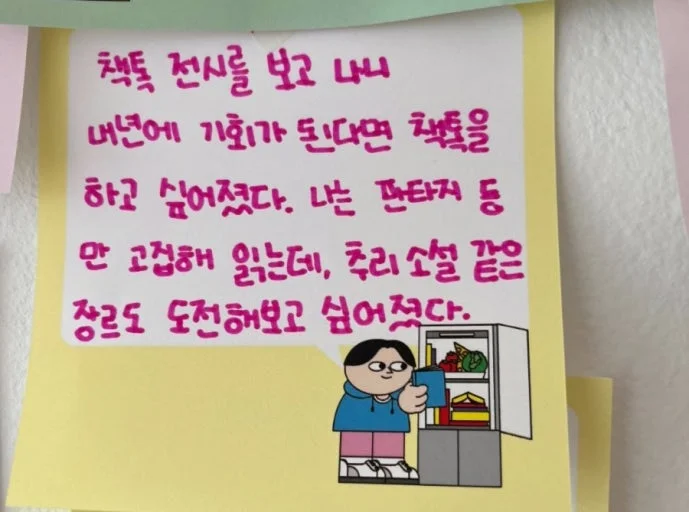 책톡 전시를 보고 나니
내년에 기회가 된다면 책톡을
하고 싶어졌다. 나는 판타지 등
만 고집해 읽는데, 추리 소설 같은
장르도 도전해보고 싶어졌다.